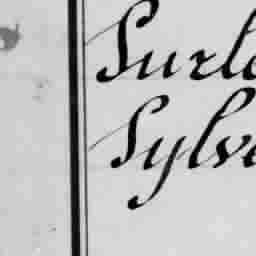 Surle
Sylve